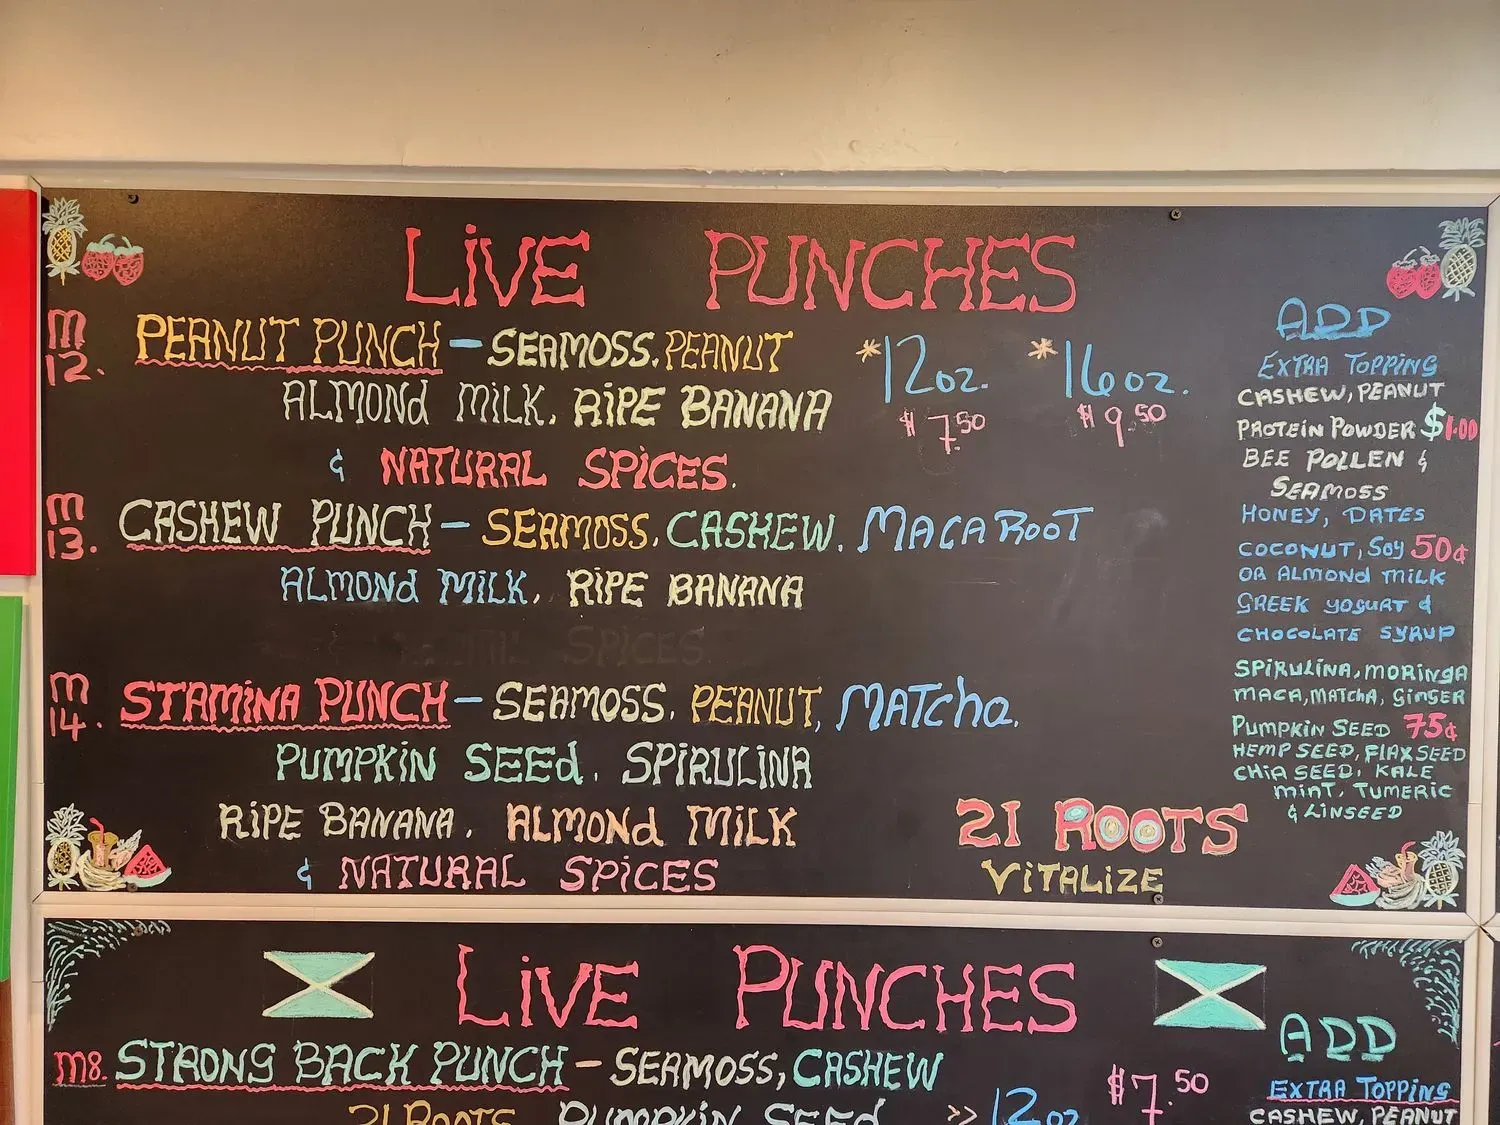 LiVE PUNCHES
M 12. PEANUT PUNCH - SEAMOSS. PEANUT
ALMONd MiLK. RiPE BANANA
& NATURAL SPiCES.
*12oz. *16oz.
$7.50 $9.50
M 13. CASHEW PUNCH - SEAMOSS. CASHEW. MACA ROOT
ALMONd MiLK. RiPE BANANA
SPiCES.
M 14. STAMiNA PUNCH - SEAMOSS. PEANUT, MATCha.
PUMPKiN SEEd. SPiRULiNA
RiPE BANANA. ALMONd MiLK
& NATURAL SPiCES
21 ROOTS
ViTALiZE
ADD
EXTRA TOPPiNG
CASHEW, PEANUT
PROTEiN POWDER $1.00
BEE POLLEN &
SEAMOSS
HONEY, DATES
COCONUT, SOY 50¢
OR ALMONd MiLK
GREEK YOGURT &
CHOCOLATE SYRUP
SPiRULiNA, MORiNGA
MACA, MATCHA, GiNGER
PUMPKiN SEED 75¢
HEMP SEED, FlAX SEED
CHiA SEED, KALE
MiNT, TUMERiC
& LiNSEED
LiVE PUNCHES
M8. STRONG BACK PUNCH - SEAMOSS, CASHEW
21 ROOTS PUMPKiN SEEd
>> 12oz $7.50
ADD
EXTRA TOPPiNG
CASHEW, PEANUT